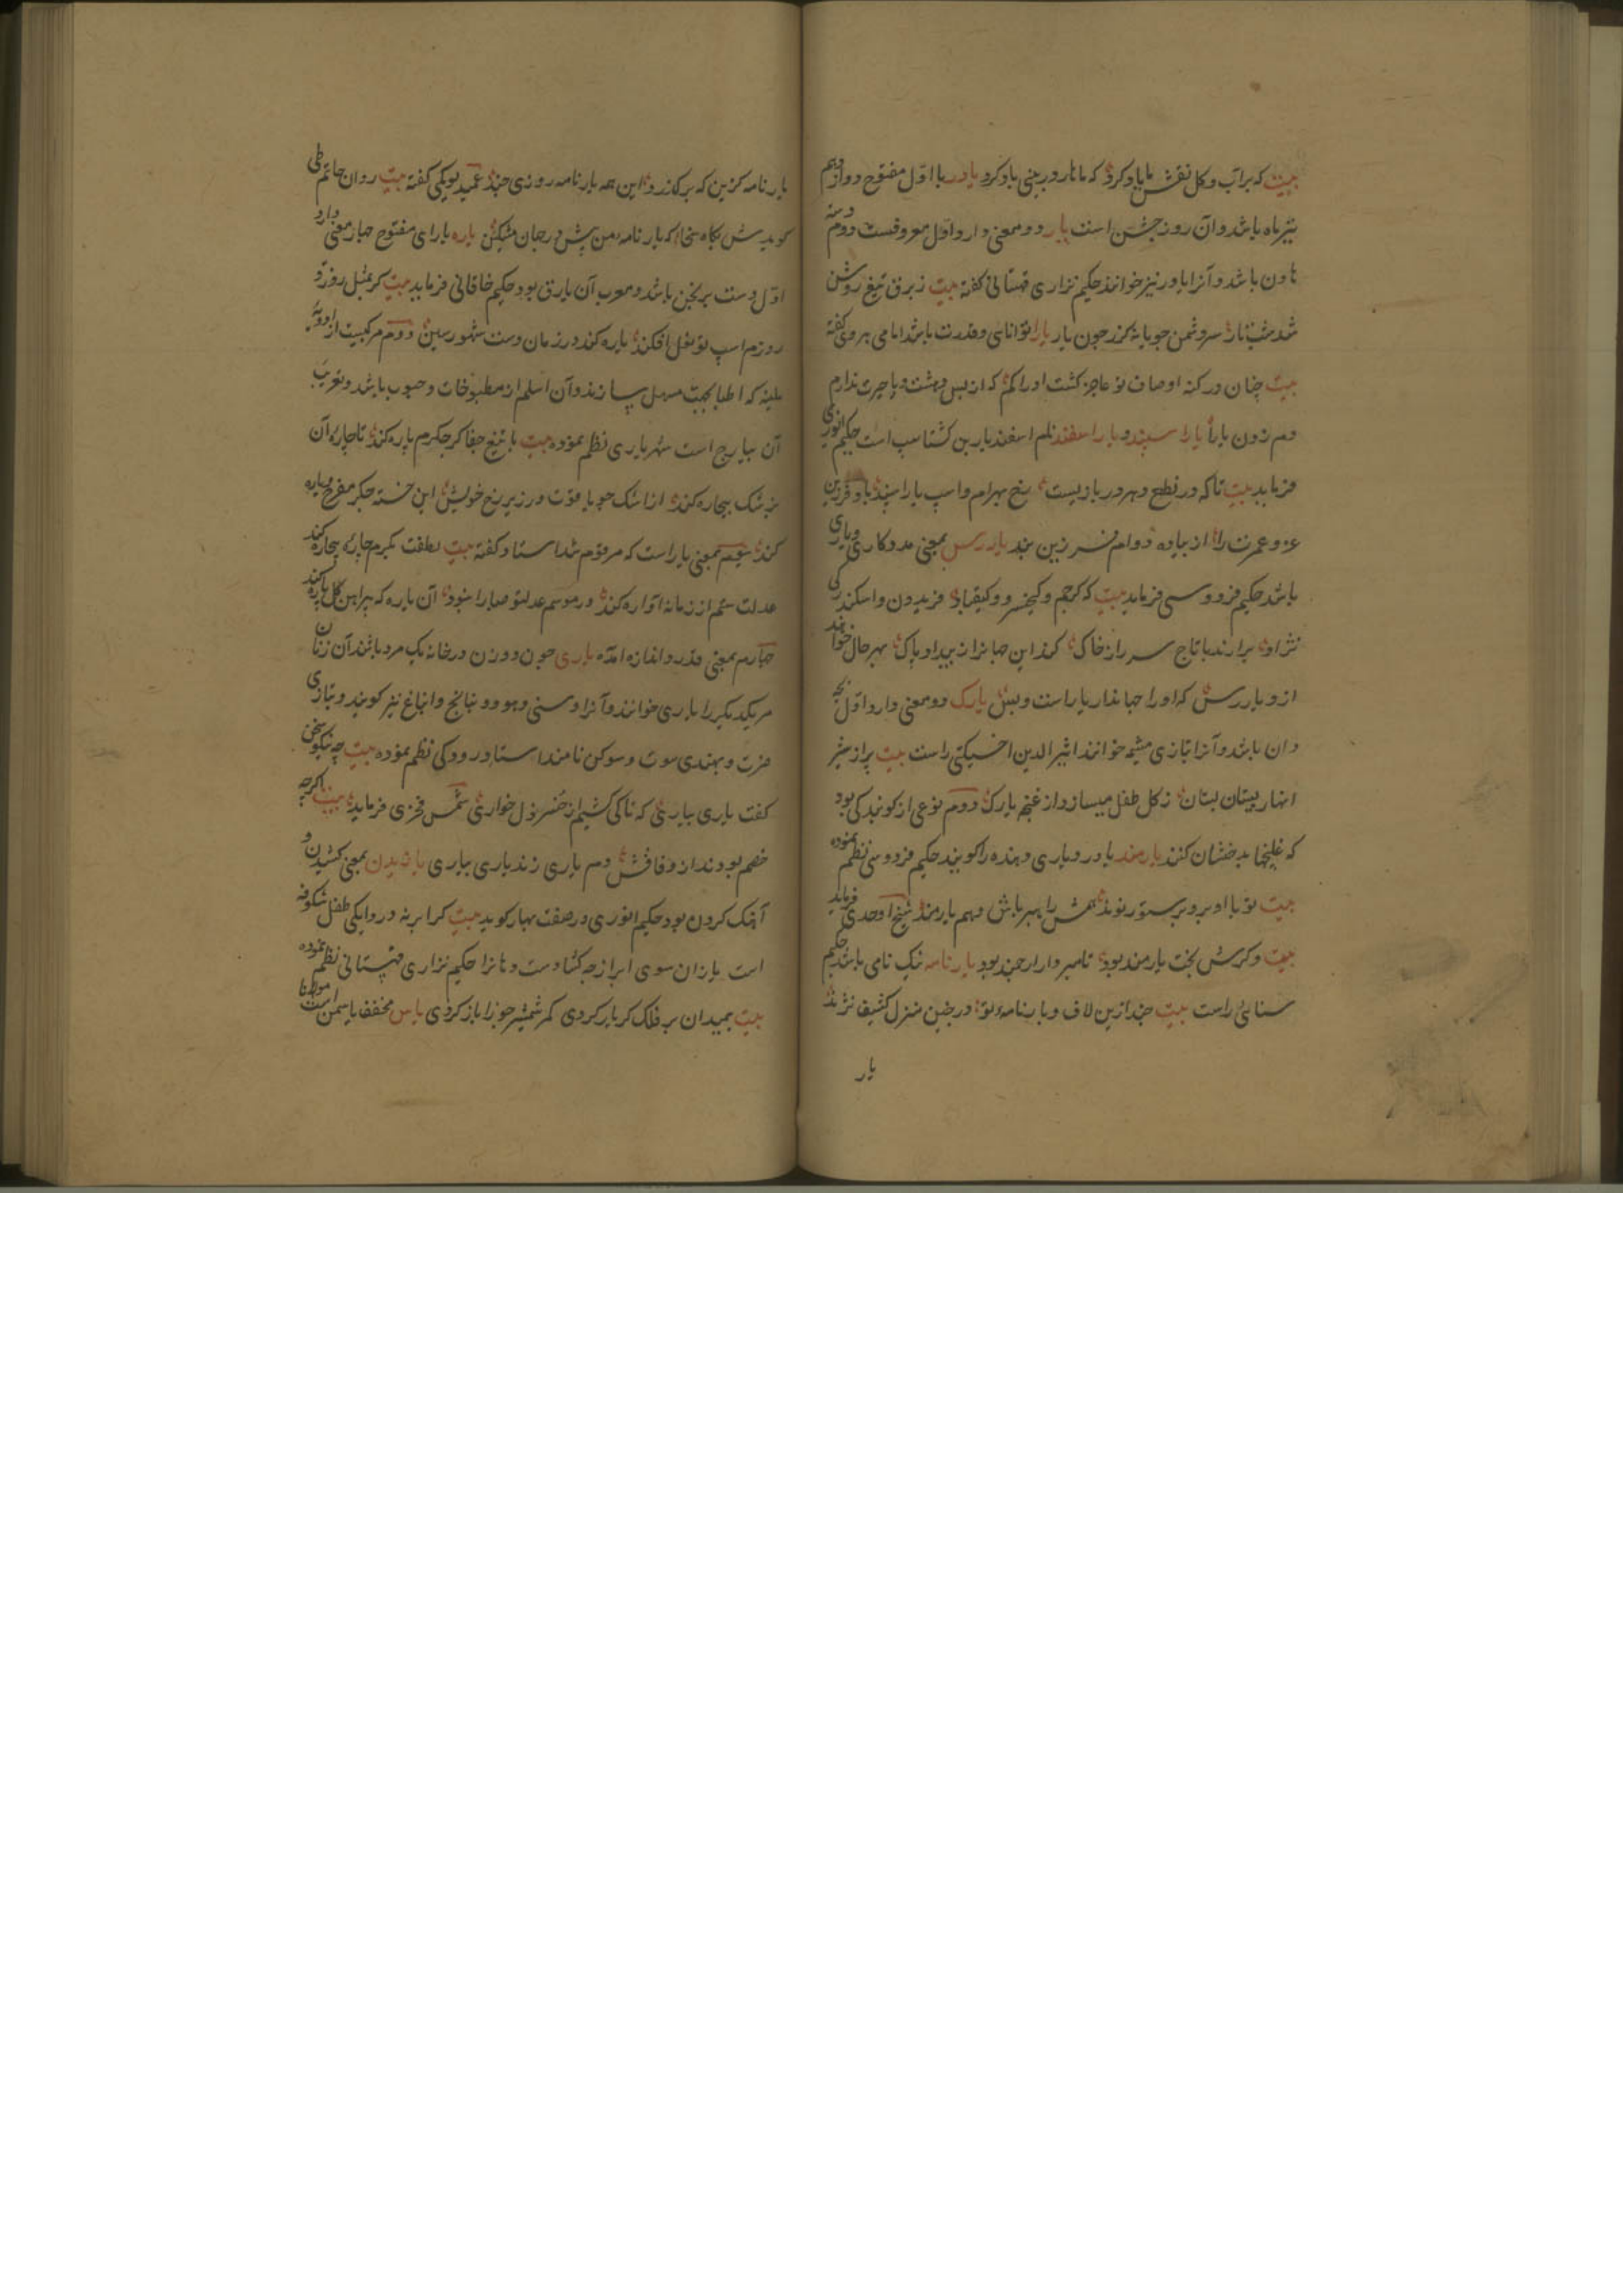 بیت که بر آب و گل نقش ما یاد کرد که ما نار در بینی یاد کرد یا در با اول مفتوح دوازدهم
تیر ماه باشد و آن روز جشن است یار دو معنی دارد اول معروفست دوم دسته
هاون باشد و آنرا یاور نیز خوانند حکیم نزاری قهستانی گفته بیت ز برق تیغ روشن
شد شب تار سر دشمن جو یار یارا توانائی و قدرت باشد امامی هروی گفته
بیت چنان در کنه اوصاف تو عاجز کشت ادراکم که از بس دهشت و یا حیرت ندارم
دم زدن یارا یارا سپند و یارا سفند نام اسفندیار بن کشتاسب است حکیم انوری
فرماید بیت تا که در نطع دهر در بازیست رخ بهرام و اسب یارا سپند باد فرزین
عز و عمرت را از پیاده دوام فرزین بند یاررس بمعنی مددکاری و یاری
باشد حکیم فردوسی فرماید بیت که کر جم و کیخسرو و کیقباد فریدون و اسکندر کی
نژاد برارند با تاج سر از خاک کرد این جهانرا ز بیداد پاک بهر حال خواند
ازو یاررس که او را جهاندار یار است و بس یارک دو معنی دارد اول بچه
دان باشد و آنرا بتازی مشیمه خوانند اثیر الدین اخسیکتی راست بیت پر از شیر
انهار پستان بستان ز کل طفل میسازد از غنچه یارک دوم نوعی از کویندکی بود
که غلیجها بدخشان کنند یارمند یاور و یاری دهنده را کویند حکیم فردوسی نظم نموده
بیت تو با او برو بر ستور نوند همش راهبر باش و هم یارمند شیخ اوحدی فرماید
بیت و کرش بخت یارمند بود نامبردار ارجمند بود یارنامه نیک نامی باشد حکیم
سنائی راست بیت چند ازین لاف و یارنامه تو در چنین منزل کثیف نژند
یار
یارنامه کزین که بر کذرد این همه یارنامه روزی چند عمید لویکی کفته بیت روان حاتم طی
کویدش بکاه سخا که یارنامه من پیش در جهان مشکن یاره با رای مفتوح چهار معنی دارد
اول دست برنجن باشد و معرب آن یارق بود حکیم خاقانی فرماید بیت کر بمثل روز
رزم اسب تو نعل افکند یاره کند در زمان دست شهور سنین دوم مرکبیست از ادویه
ملینه که اطبا بجهت مسهل سازند و آن اسلم از مطبوخات و حبوب باشد و تعریب
آن یارج است شهریاری نظم نموده بیت با تیغ جفا کر جکرم پاره کند تا چاره آن
پزشک بیچاره کند از اشک چو یاقوت و زر پر رخ خویش این خسته جکر مفرح و یاره
کند سیوم بمعنی یارا است که مرقوم شد استاد کفته بیت لطفت بکرم چاره بیچاره کند
عدلت ستم از زمانه آواره کند در موسم عدل تو صبا را نبود آن یاره که پیراهن کل پاره کند
چهارم بمعنی قدر و اندازه آمده یاری چون دو زن در خانه یک مرد باشند آن زنان
مر یکدیکر را یاری خوانند و آنرا وسنی و هوو و بنانج و انباغ نیز کویند و بتازی
ضرت و بهندی سوت و سوکن نامند استاد رودکی نظم نموده بیت چه نیکو سخن
کفت یاری بیاری که تا کی کشیم از خسر ذل خواری شمس فخری فرماید بیت اکرچه
خصم بودند از وفاقش دم یاری زند یاری بیاری یازیدن بمعنی کشیدن و
آهنک کردن بود حکیم انوری در صفت بهار کوید بیت کر ابر نه در دایکی طفل شکوفه
است یازان سوی ابر از چه کشادست دهانرا حکیم نزاری قهستانی نظم نموده
بیت بمیدان بر فلک کر یاز کردی کمر شمشیر جوزا باز کردی یاس مخفف یاسمن است مولانا